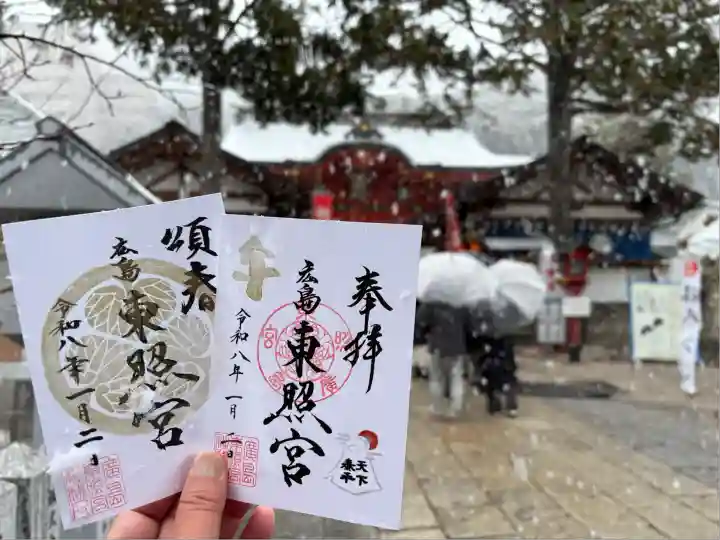 頌春
広島
東照宮
令和八年一月二日
奉拝
広島
東照宮
令和八年 一月 二日
天下
泰平